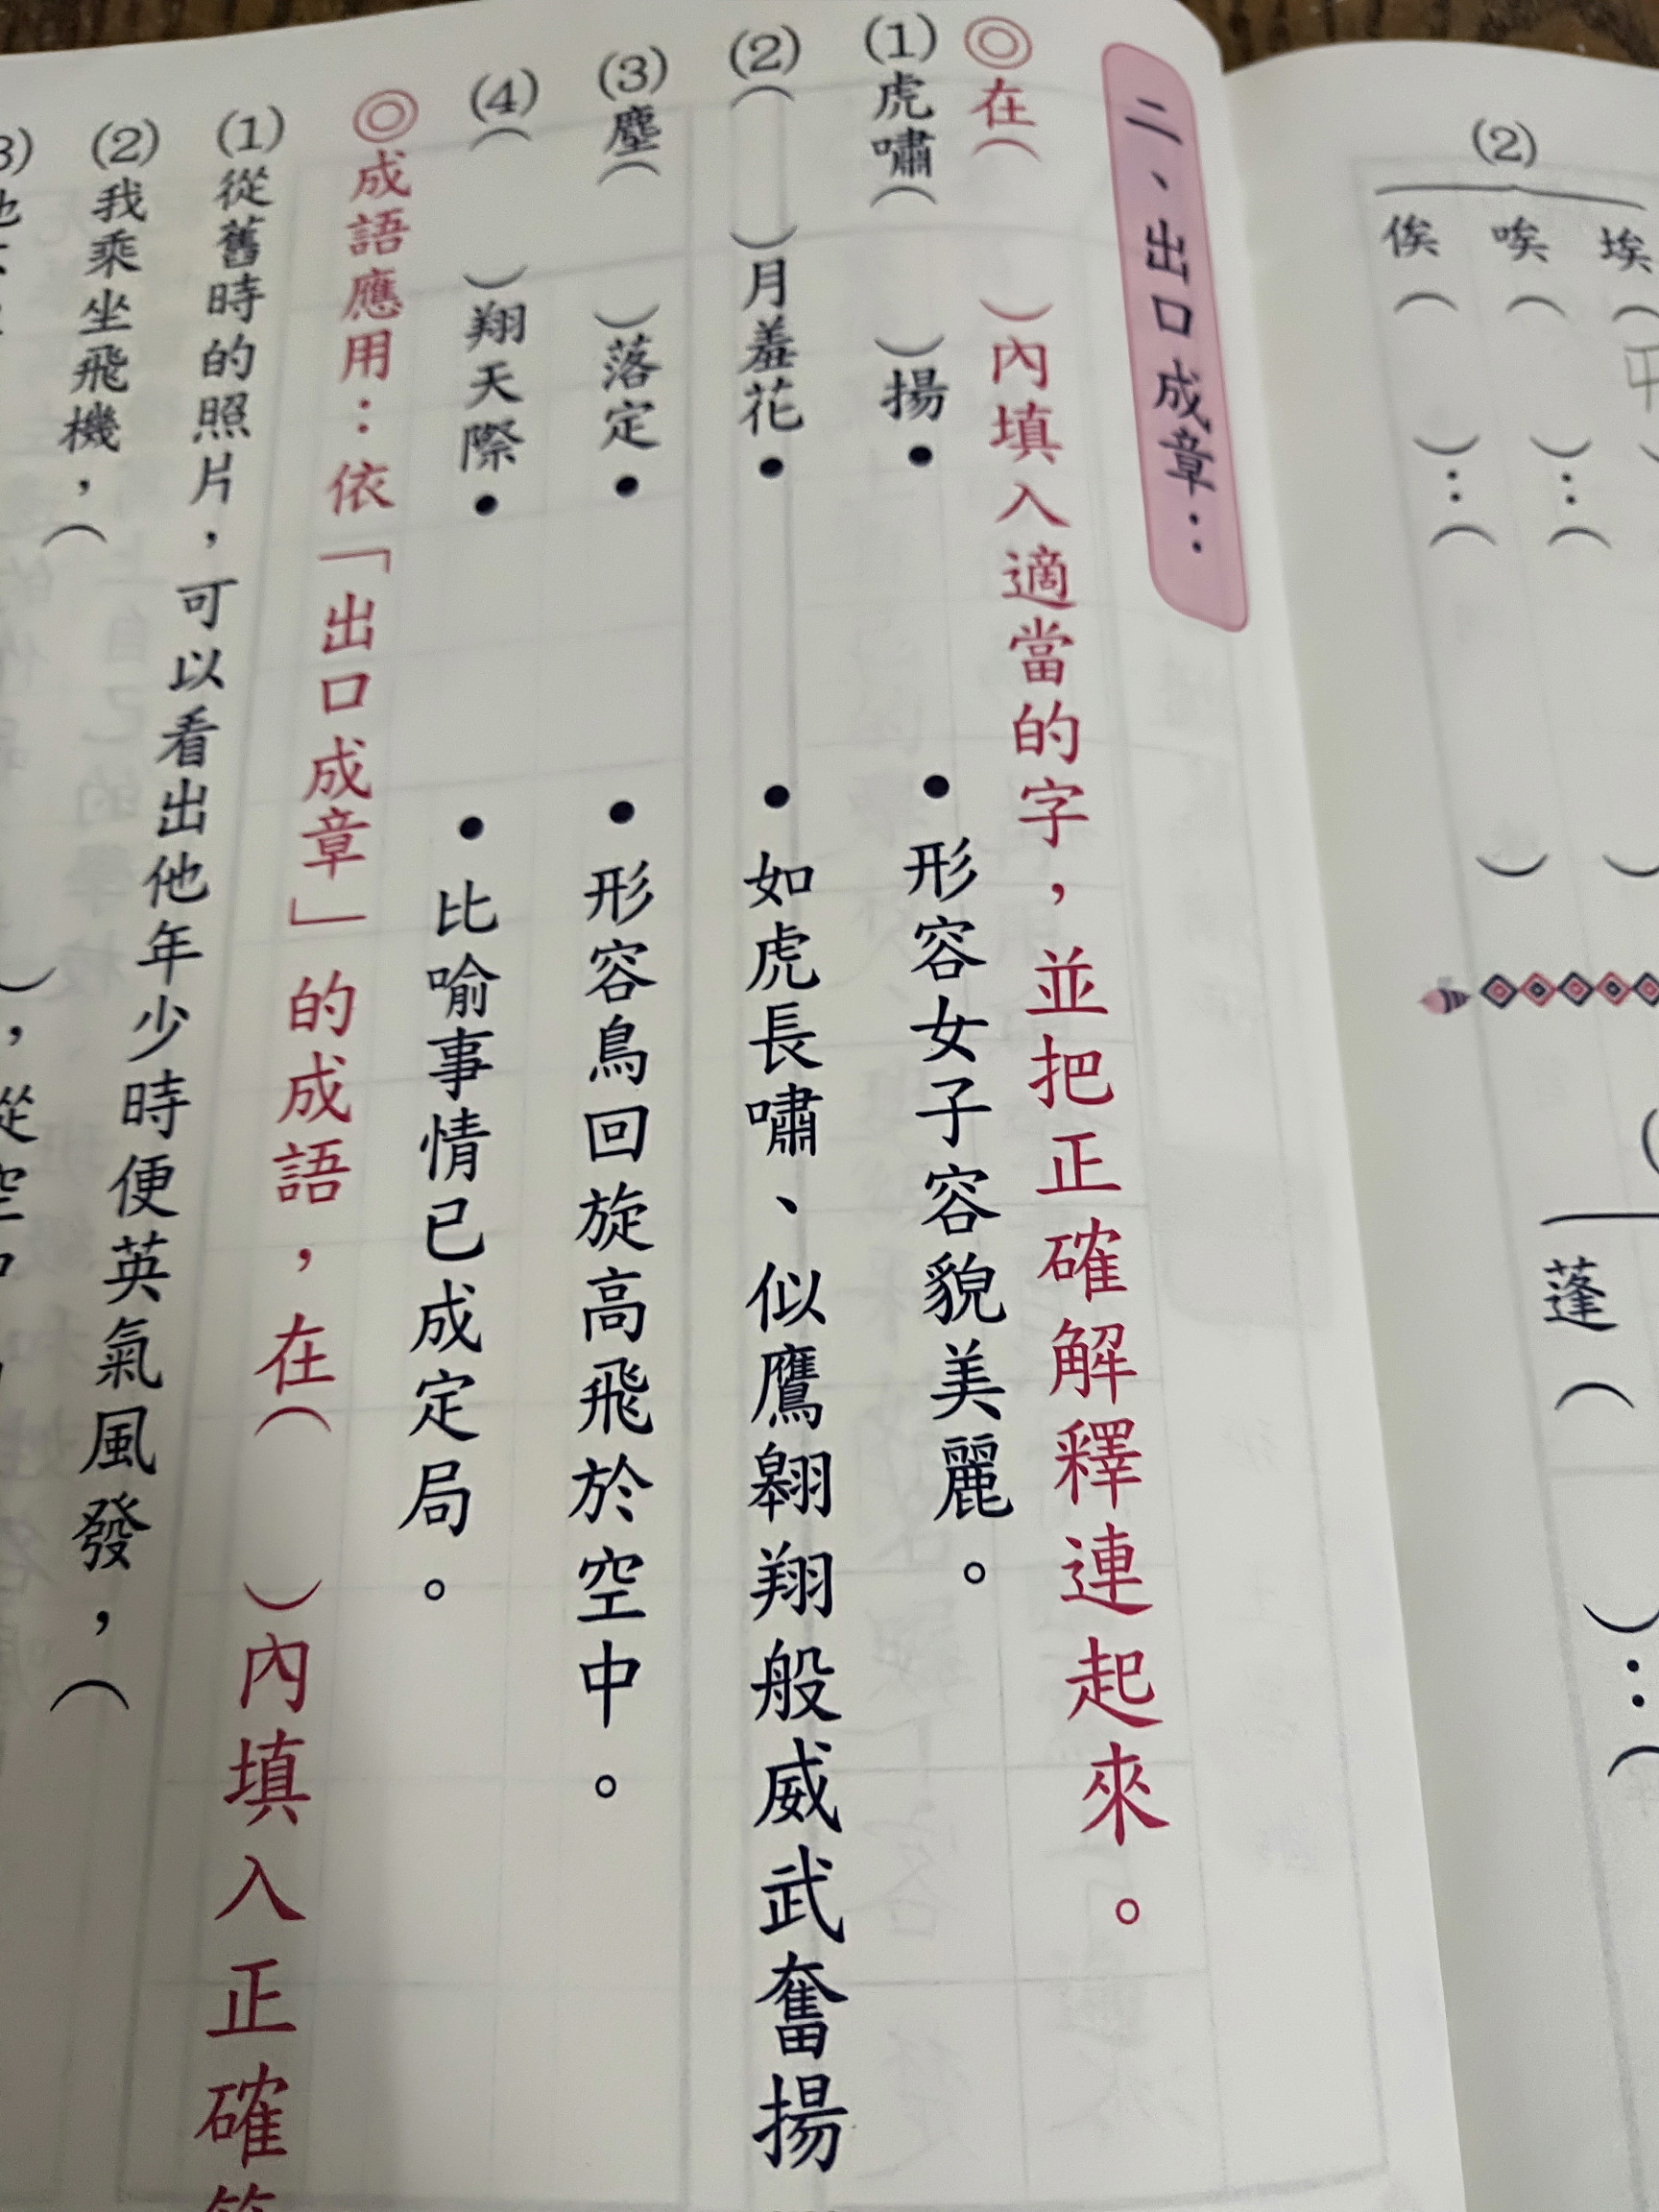 (2)
埃( 平
唉( )：( )
俟( )：( )
蓬( )：(
二、出口成章：
◎在( )內填入適當的字，並把正確解釋連起來。
(1)虎嘯( )揚• •形容女子容貌美麗。
(2)( )月羞花• •如虎長嘯、似鷹翱翔般威武奮揚
(3)塵( )落定• •形容鳥回旋高飛於空中。
(4)( )翔天際• •比喻事情已成定局。
◎成語應用：依「出口成章」的成語，在( )內填入正確
(1)從舊時的照片，可以看出他年少時便英氣風發，(
(2)我乘坐飛機，(